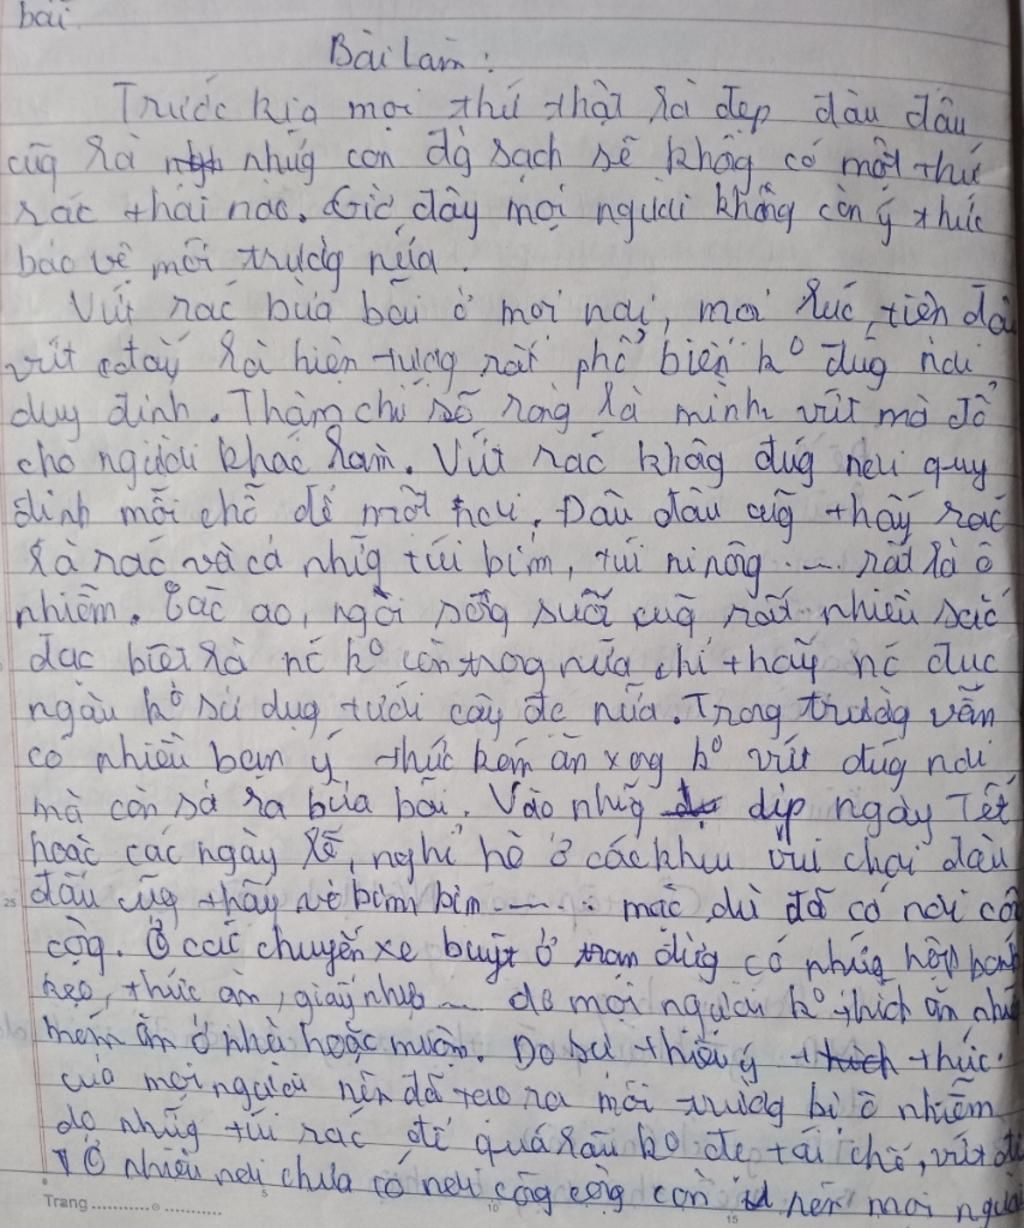 bãi
Bài làm :
Trước kia mọi thứ thật là đẹp đâu đâu
cũg là nhữg con đg sạch sẽ khôg có một thứ
rác thải nào. Giờ đây mọi người không còn ý thức
bảo vệ môi trườg nữa.
Vứt rác bừa bãi ở mọi nơi, mọi lúc, tiện đâu
vứt đấy là hiện tượg rất phổ biến kº đúg nơi
duy định. Thậm chí số rộng là mình vứt mà đổ
cho người khác làm. Vứt rác khôg đúg nơi quy
định mỗi chỗ để một nơi. Đâu đâu cũg thấy rác
là rác và cả nhữg túi bim, túi ninôg .... rất là ô
nhiễm. Các ao, ngòi sôg suối cũg rất nhiều
đặc biệt là nc kº còn trog nữa chỉ thấy nc đục
ngàu kº sử dụg tưới cây đc nữa. Trong trườg vẫn
có nhiều bạn ý thức kém ăn xog kº vứt đúg nơi
mà còn xả ra bừa bãi. Vào nhữg dịp ngày Tết
hoặc các ngày lễ, nghỉ hè ở các khu vui chơi đâu
đâu cũg thấy vỏ bim bim .... mặc dù đã có nơi côg
cộg. Ở các chuyến xe buýt ở trạm dừg có nhữg hộp bánh
kẹo, thức ăn, giấy nhựa ... do mọi người kº thích ăn
mang ăn ở nhà hoặc muộn. Do sự thiếu ý thích thức
của mọi người nên đã tạo ra môi trườg bị ô nhiễm
do nhữg túi rác để quá lâu kº đc tái chế, vứt đi
Ở nhiều nơi chưa có nơi côg cộg còn ít nên mọi người
Trang